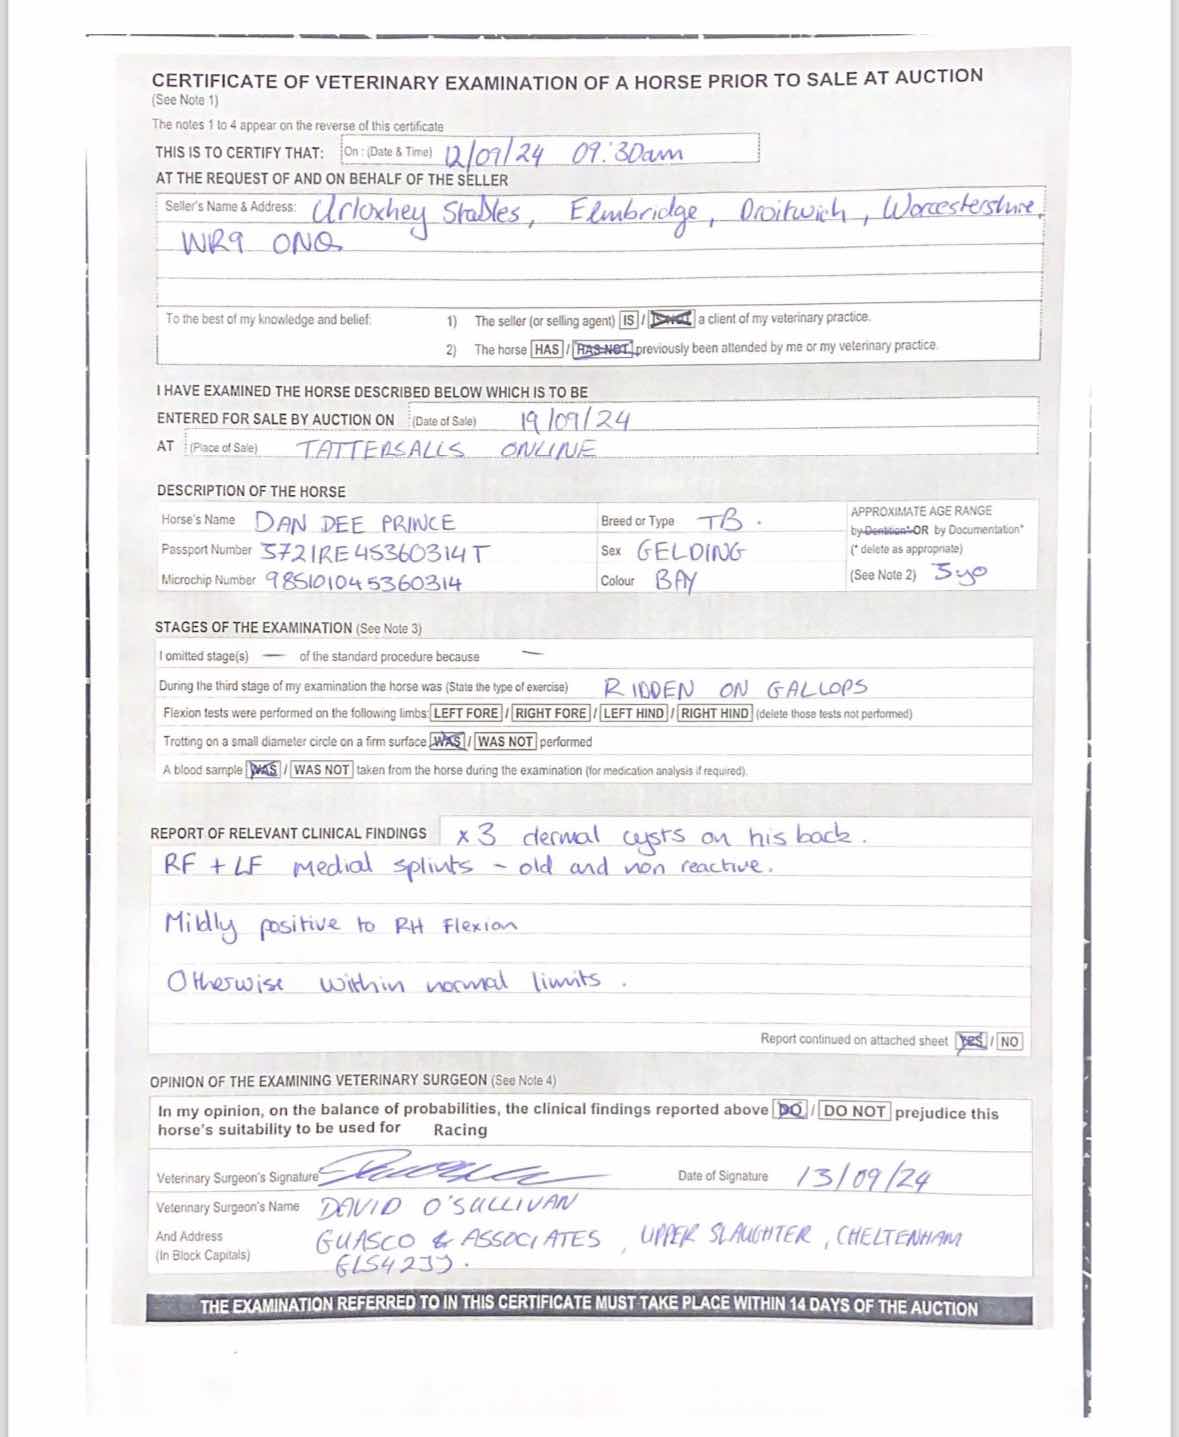 CERTIFICATE OF VETERINARY EXAMINATION OF A HORSE PRIOR TO SALE AT AUCTION
(See Note 1)
The notes 1 to 4 appear on the reverse of this certificate
THIS IS TO CERTIFY THAT: On : (Date & Time) 12/09/24 09:30am
AT THE REQUEST OF AND ON BEHALF OF THE SELLER
Seller's Name & Address: Urloxhey Stables, Elmbridge, Droitwich, Worcestershire,
WR9 0NQ
To the best of my knowledge and belief: 1) The seller (or selling agent) IS / IS NOT a client of my veterinary practice.
2) The horse HAS / HAS NOT previously been attended by me or my veterinary practice.
I HAVE EXAMINED THE HORSE DESCRIBED BELOW WHICH IS TO BE
ENTERED FOR SALE BY AUCTION ON (Date of Sale) 19/09/24
AT (Place of Sale) TATTERSALLS ONLINE
DESCRIPTION OF THE HORSE
Horse's Name DAN DEE PRINCE Breed or Type TB. APPROXIMATE AGE RANGE
by Dentition* OR by Documentation*
Passport Number 372IRE45360314T Sex GELDING (* delete as appropriate)
Microchip Number 985101045360314 Colour BAY (See Note 2) 3yo
STAGES OF THE EXAMINATION (See Note 3)
I omitted stage(s) — of the standard procedure because —
During the third stage of my examination the horse was (State the type of exercise) RIDDEN ON GALLOPS
Flexion tests were performed on the following limbs: LEFT FORE / RIGHT FORE / LEFT HIND / RIGHT HIND (delete those tests not performed)
Trotting on a small diameter circle on a firm surface WAS / WAS NOT performed
A blood sample WAS / WAS NOT taken from the horse during the examination (for medication analysis if required).
REPORT OF RELEVANT CLINICAL FINDINGS x3 dermal cysts on his back.
RF + LF medial splints - old and non reactive.
Mildly positive to RH Flexion
Otherwise within normal limits.
Report continued on attached sheet YES / NO
OPINION OF THE EXAMINING VETERINARY SURGEON (See Note 4)
In my opinion, on the balance of probabilities, the clinical findings reported above DO / DO NOT prejudice this
horse's suitability to be used for Racing
Veterinary Surgeon's Signature Date of Signature 13/09/24
Veterinary Surgeon's Name DAVID O'SULLIVAN
And Address GUASCO & ASSOCIATES, UPPER SLAUGHTER, CHELTENHAM
(In Block Capitals) GL542JJ.
THE EXAMINATION REFERRED TO IN THIS CERTIFICATE MUST TAKE PLACE WITHIN 14 DAYS OF THE AUCTION